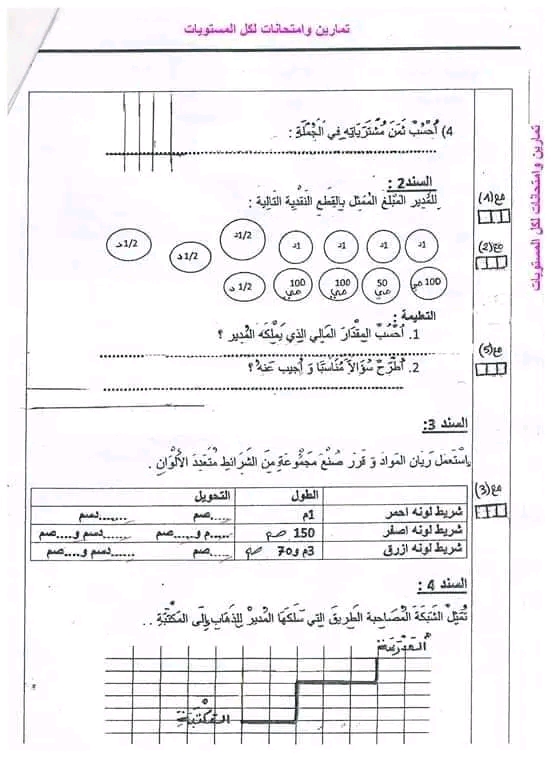 تمارين وامتحانات لكل المستويات
تمارين وامتحانات لكل المستويات
4) أَحْسُبُ ثَمَنَ مُشْتَرَيَاتِهِ فِي الْجُمْلَةِ :
السند2 :
لِلْمُدِير الْمَبْلَغُ الْمُمَثَّل بِالْقِطَعِ النَّقْدِيَّة التَّالِيَة :
مع(1)
1/2 د
1/2 د
1/2د
1د
1د
1د
1د
مع(2)
1/2 د
100 مي
100 مي
50 مي
100 مي
التعليمة :
1. أَحْسُبُ المِقْدَارَ المَالِي الذِي يَمْلِكُهُ المُدِير ؟
2. أَطْرَحُ سُؤَالًا مُنَاسِبًا وَ أُجِيب عَنْهُ ؟
مع(5)
السند 3:
اِسْتَعْمَلَ رَيَان المَوَادَ وَ قَرَرَ صُنْعَ مَجْمُوعَةٍ مِنَ الشَّرَائِطِ مُتَعَدِدَ الأَلْوَانِ .
مع(3)
الطول التحويل
شريط لونه احمر 1م .....صم .......دسم
شريط لونه اصفر 150 صم .....م و.....صم .....دسم و....صم
شريط لونه ازرق 3م و70 صم .....صم .....دسم و....صم
السند 4 :
تُمَثِّلُ الشَّبَكَةُ الْمُصَاحِبَة الطَّرِيقَ التِي سَلَكَهَا المُدِيرُ لِلذَّهَابِ إِلَى المَكْتَبَةِ ..
المَدْرَسَة
المَكْتَبَةِ